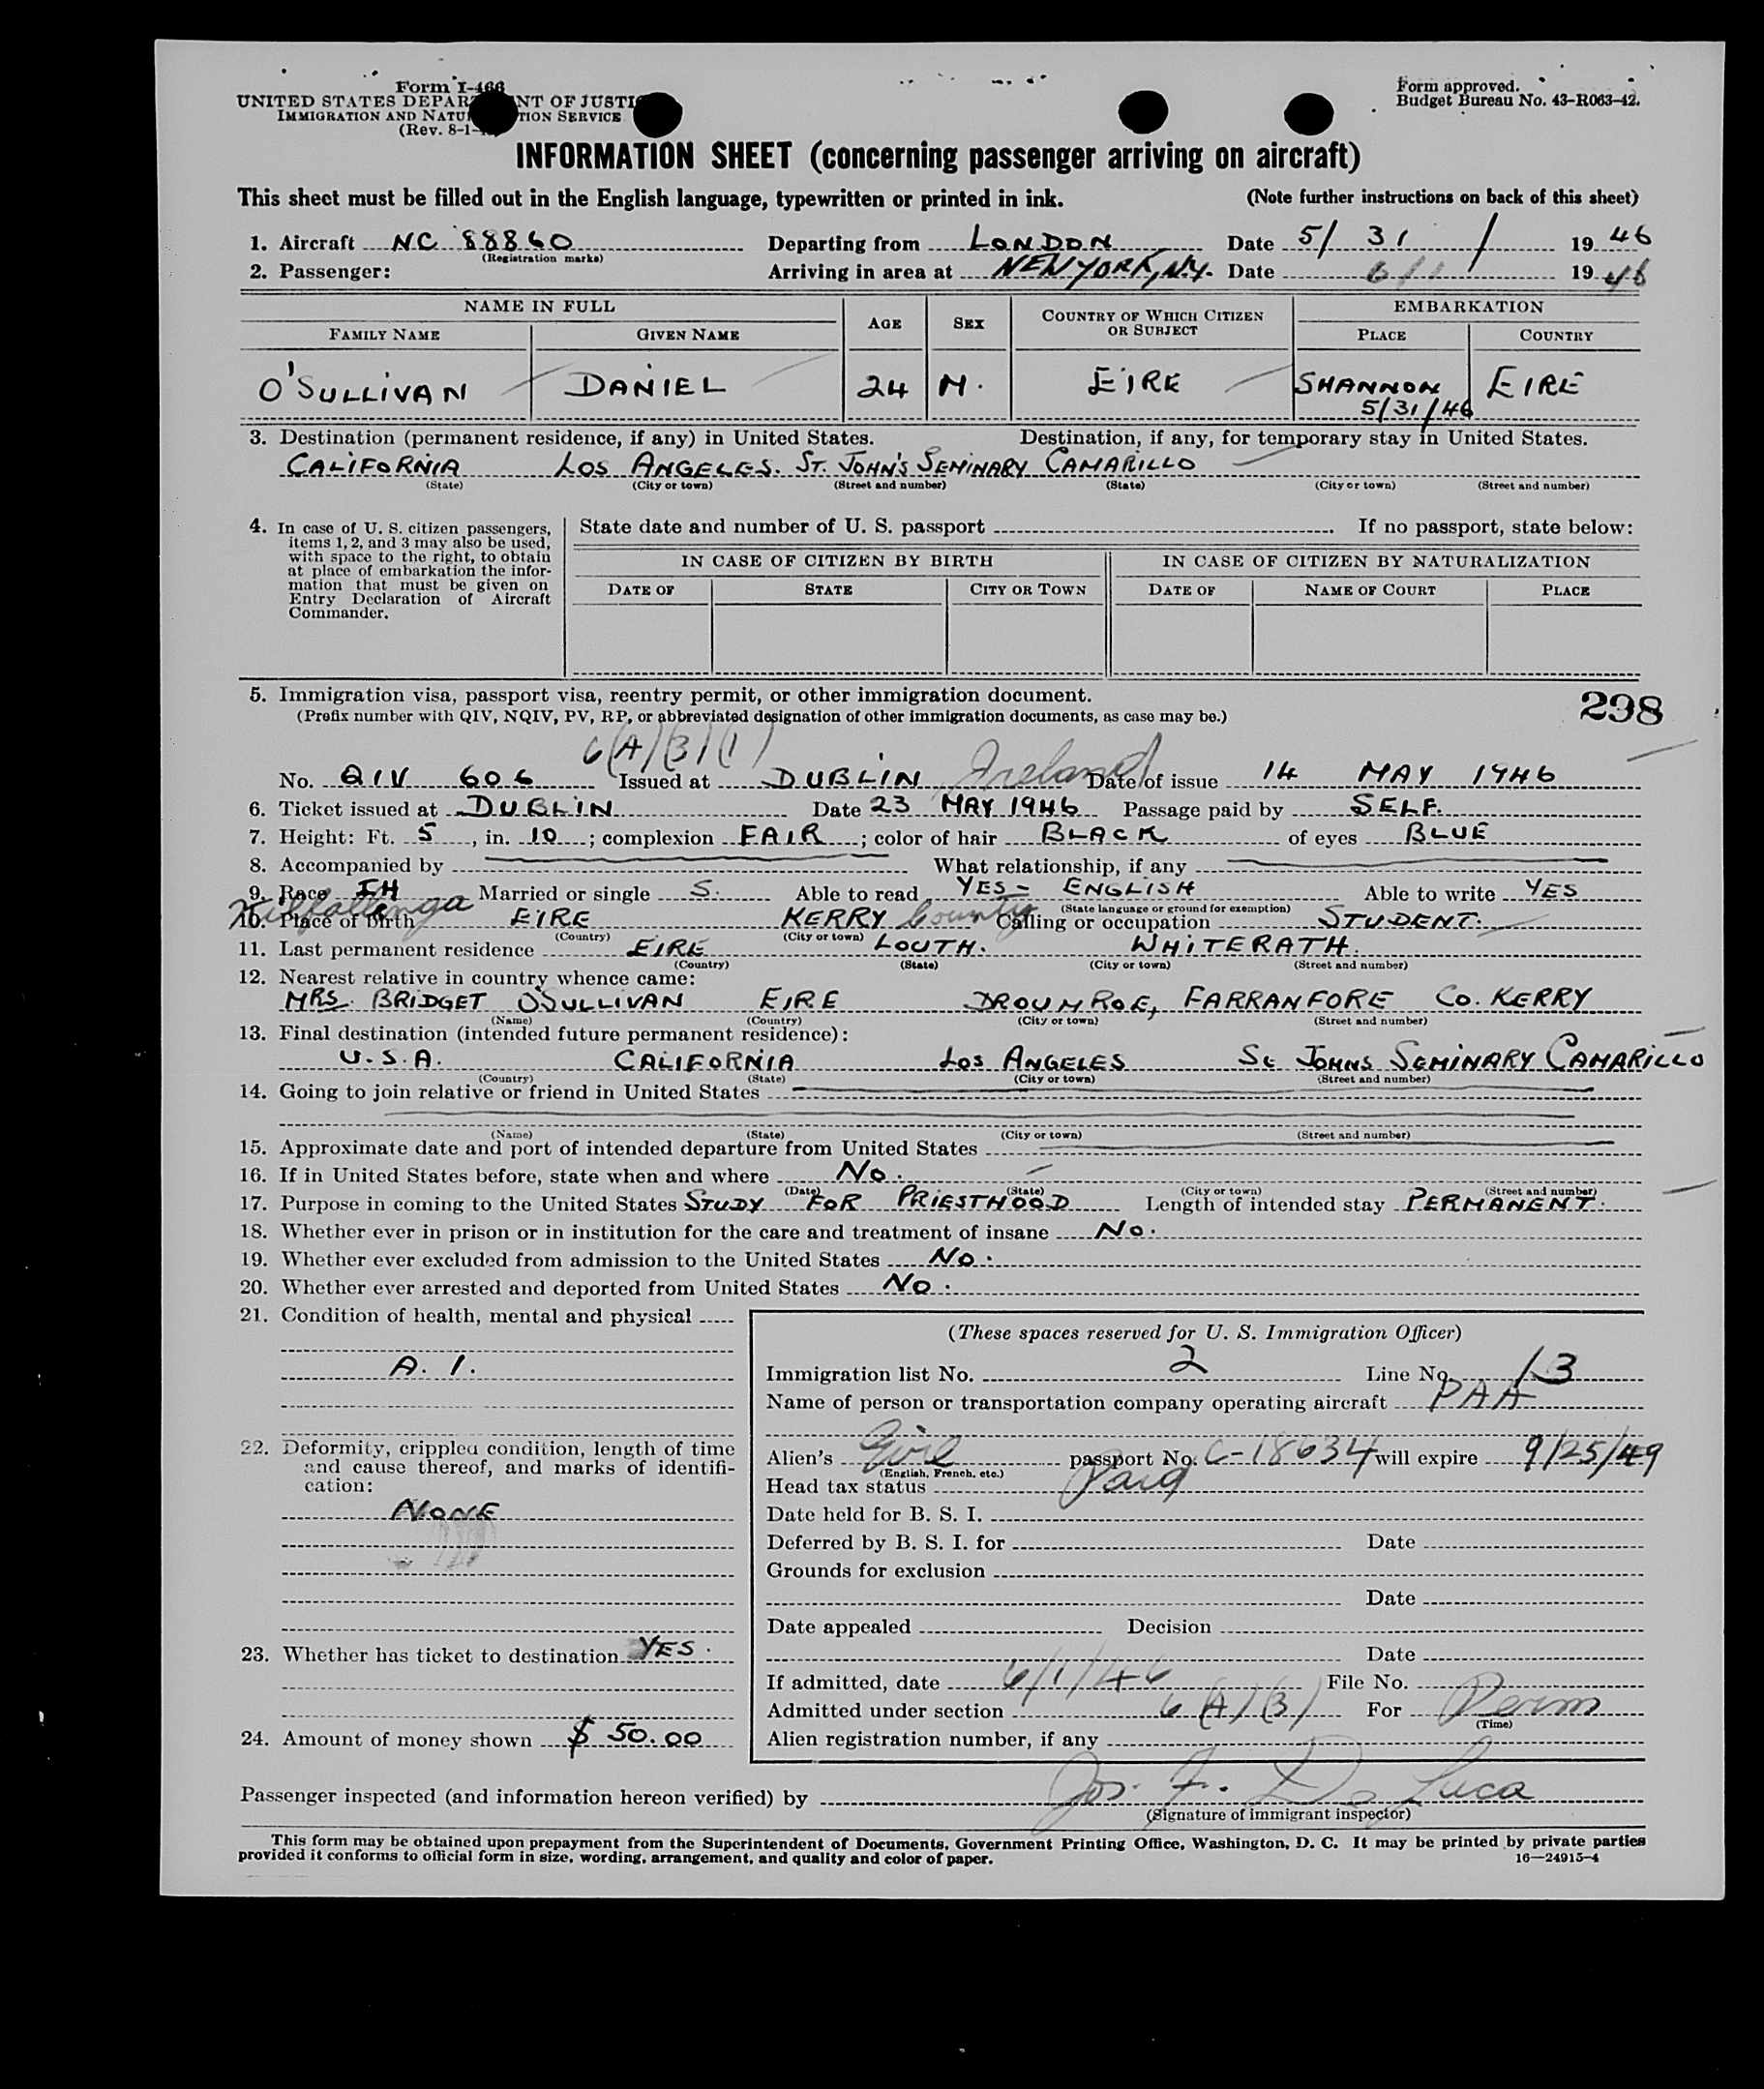 Form I-466
UNITED STATES DEPAR NT OF JUSTI
IMMIGRATION AND NATU TION SERVICE
(Rev. 8-1-
Form approved.
Budget Bureau No. 43-R063-42.
INFORMATION SHEET (concerning passenger arriving on aircraft)
This sheet must be filled out in the English language, typewritten or printed in ink. (Note further instructions on back of this sheet)
1. Aircraft NC 88860 Departing from LONDON Date 5/ 31 / 19 46
(Registration marks)
2. Passenger: Arriving in area at NEW YORK, N.Y. Date 6/1 19 46
NAME IN FULL AGE SEX COUNTRY OF WHICH CITIZEN OR SUBJECT EMBARKATION
FAMILY NAME GIVEN NAME PLACE COUNTRY
O'SULLIVAN DANIEL 24 M. EIRE SHANNON EIRE
5/31/46
3. Destination (permanent residence, if any) in United States. Destination, if any, for temporary stay in United States.
CALIFORNIA LOS ANGELES. ST. JOHN'S SEMINARY CAMARILLO
(State) (City or town) (Street and number) (State) (City or town) (Street and number)
4. In case of U. S. citizen passengers,
items 1, 2, and 3 may also be used,
with space to the right, to obtain
at place of embarkation the infor-
mation that must be given on
Entry Declaration of Aircraft
Commander.
State date and number of U. S. passport If no passport, state below:
IN CASE OF CITIZEN BY BIRTH IN CASE OF CITIZEN BY NATURALIZATION
DATE OF STATE CITY OR TOWN DATE OF NAME OF COURT PLACE
5. Immigration visa, passport visa, reentry permit, or other immigration document.
(Prefix number with QIV, NQIV, PV, RP, or abbreviated designation of other immigration documents, as case may be.)
298
6(A)(3)(1)
No. QIV 606 Issued at DUBLIN, Ireland Date of issue 14 MAY 1946
6. Ticket issued at DUBLIN Date 23 MAY 1946 Passage paid by SELF.
7. Height: Ft. 5, in. 10; complexion FAIR; color of hair BLACK of eyes BLUE
8. Accompanied by What relationship, if any
9. Race IH Married or single S. Able to read YES - ENGLISH Able to write YES
(State language or ground for exemption)
10. Place of birth EIRE KERRY County Calling or occupation STUDENT.
(Country) (City or town)
11. Last permanent residence EIRE LOUTH. WHITERATH.
(Country) (State) (City or town) (Street and number)
12. Nearest relative in country whence came:
MRS. BRIDGET O'SULLIVAN EIRE DROUMROE, FARRANFORE CO. KERRY
(Name) (Country) (City or town) (Street and number)
13. Final destination (intended future permanent residence):
U.S.A. CALIFORNIA LOS ANGELES St JOHNS SEMINARY CAMARILLO
(Country) (State) (City or town) (Street and number)
14. Going to join relative or friend in United States
(Name) (State) (City or town) (Street and number)
15. Approximate date and port of intended departure from United States
16. If in United States before, state when and where NO.
(Date) (State) (City or town) (Street and number)
17. Purpose in coming to the United States STUDY FOR PRIESTHOOD Length of intended stay PERMANENT.
18. Whether ever in prison or in institution for the care and treatment of insane NO.
19. Whether ever excluded from admission to the United States NO.
20. Whether ever arrested and deported from United States NO.
21. Condition of health, mental and physical
A. 1.
22. Deformity, crippled condition, length of time
and cause thereof, and marks of identifi-
cation:
NONE
23. Whether has ticket to destination YES.
24. Amount of money shown $ 50.00
(These spaces reserved for U. S. Immigration Officer)
Immigration list No. 2 Line No. 13
Name of person or transportation company operating aircraft PAA
Alien's Eire passport No. C-18634 will expire 9/25/49
(English, French, etc.)
Head tax status Paid
Date held for B. S. I.
Deferred by B. S. I. for Date
Grounds for exclusion
Date
Date appealed Decision
Date
If admitted, date 6/1/46 File No.
Admitted under section 6(A)(3) For Perm
(Time)
Alien registration number, if any
Passenger inspected (and information hereon verified) by Jos. F. De Luca
(Signature of immigrant inspector)
This form may be obtained upon prepayment from the Superintendent of Documents, Government Printing Office, Washington, D. C. It may be printed by private parties
provided it conforms to official form in size, wording, arrangement, and quality and color of paper. 16—24915-4